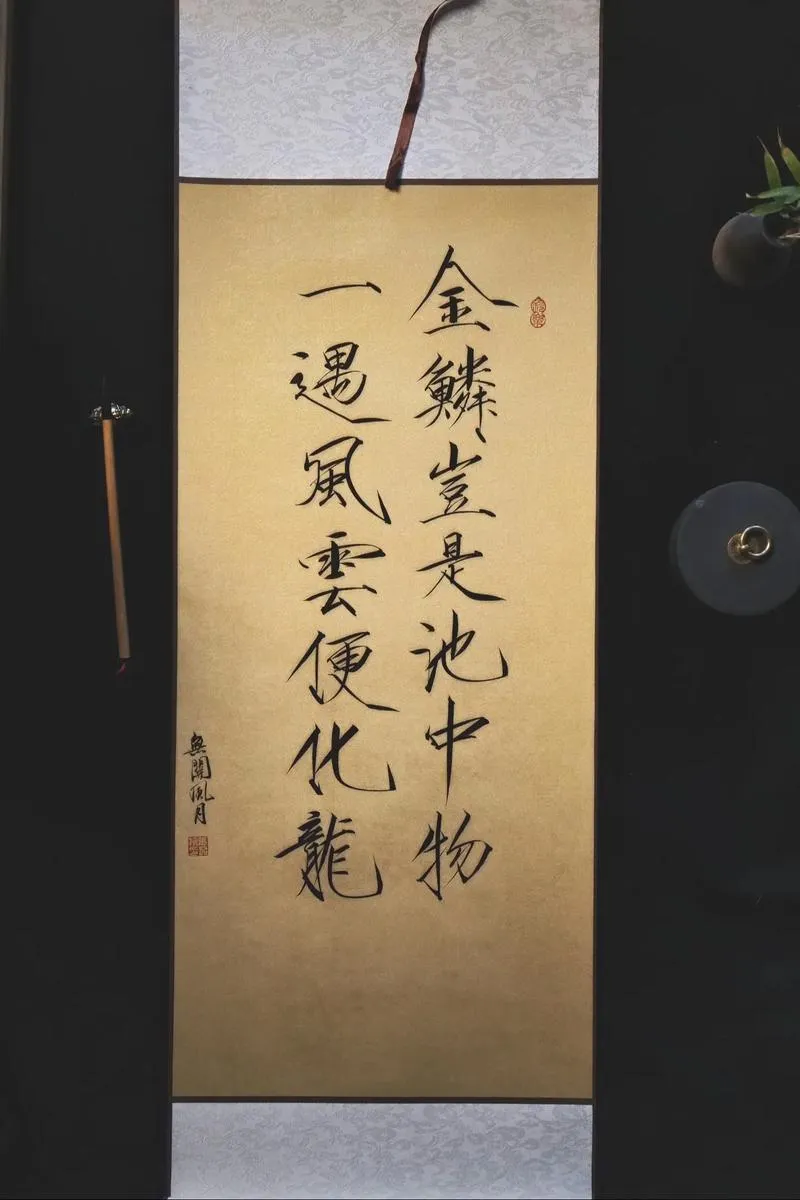 金鱗豈是池中物
一遇風雲便化龍
無關風月